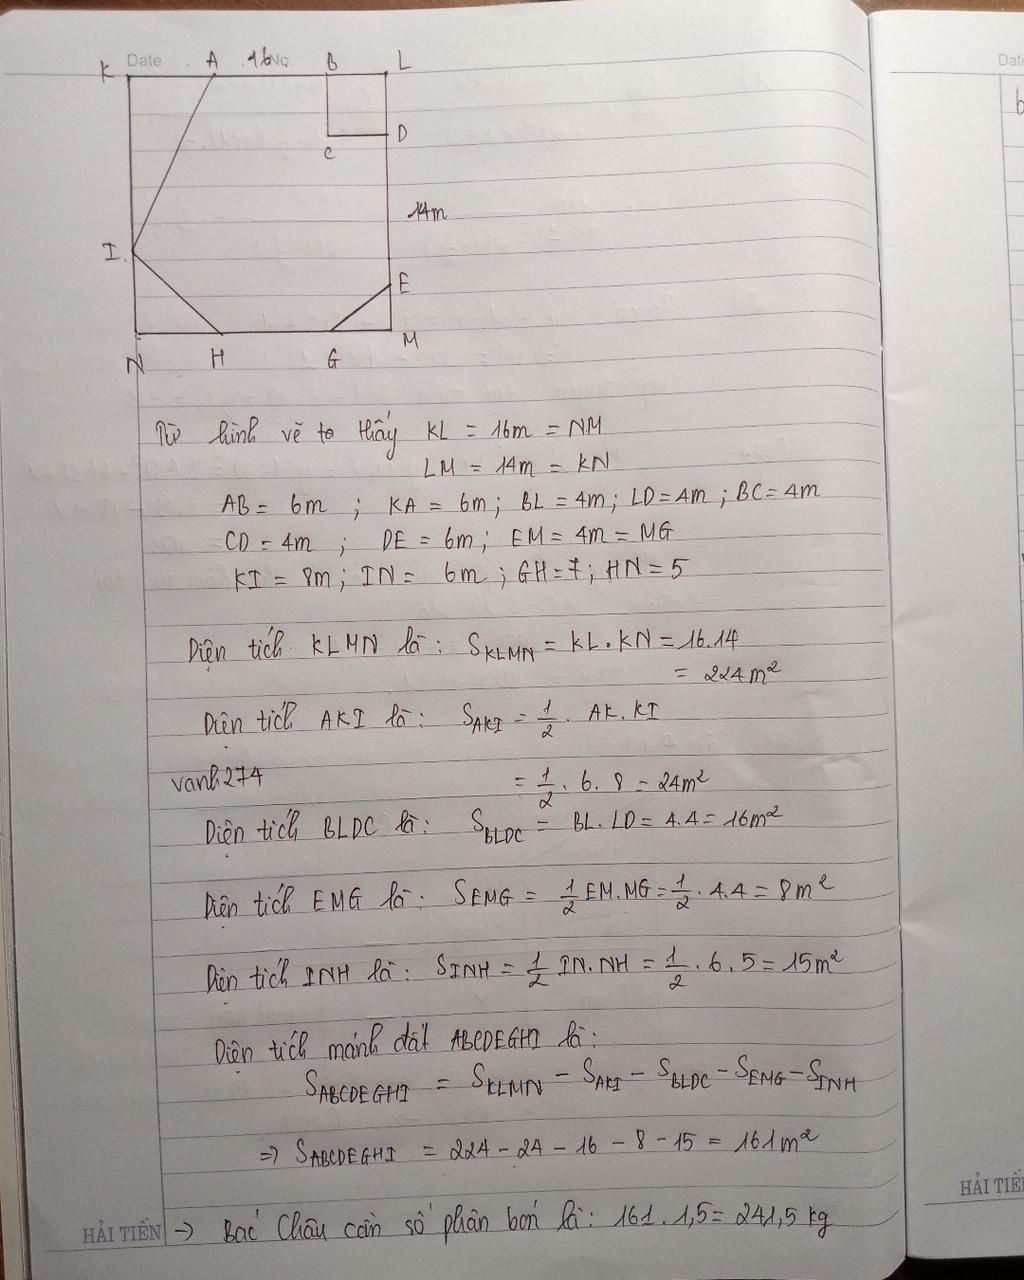 Date
No
Date
K
A
16
B
L
C
D
14m
I
E
N
H
G
M
Từ hình vẽ ta thấy KL = 16m = NM
LM = 14m = KN
AB = 6m ; KA = 6m ; BL = 4m ; LD = 4m ; BC = 4m
CD = 4m ; DE = 6m ; EM = 4m = MG
KI = 8m ; IN = 6m ; GH = 7 ; HN = 5
Diện tích KLMN là : S_KLMN = KL . KN = 16.14
= 224m²
Diện tích AKI là : S_AKI = 1/2 . AK . KI
vanh274
= 1/2 . 6 . 8 = 24m²
Diện tích BLDC là : S_BLDC = BL . LD = 4.4 = 16m²
Diện tích EMG là : S_EMG = 1/2 EM.MG = 1/2 . 4.4 = 8m²
Diện tích INH là : S_INH = 1/2 IN.NH = 1/2 . 6 . 5 = 15m²
Diện tích mảnh đất ABCDEGHI là :
S_ABCDEGHI = S_KLMN - S_AKI - S_BLDC - S_EMG - S_INH
=> S_ABCDEGHI = 224 - 24 - 16 - 8 - 15 = 161m²
→ Bác Châu cần số phân bón là : 161 . 1,5 = 241,5 kg
HẢI TIẾN
HẢI TIẾ